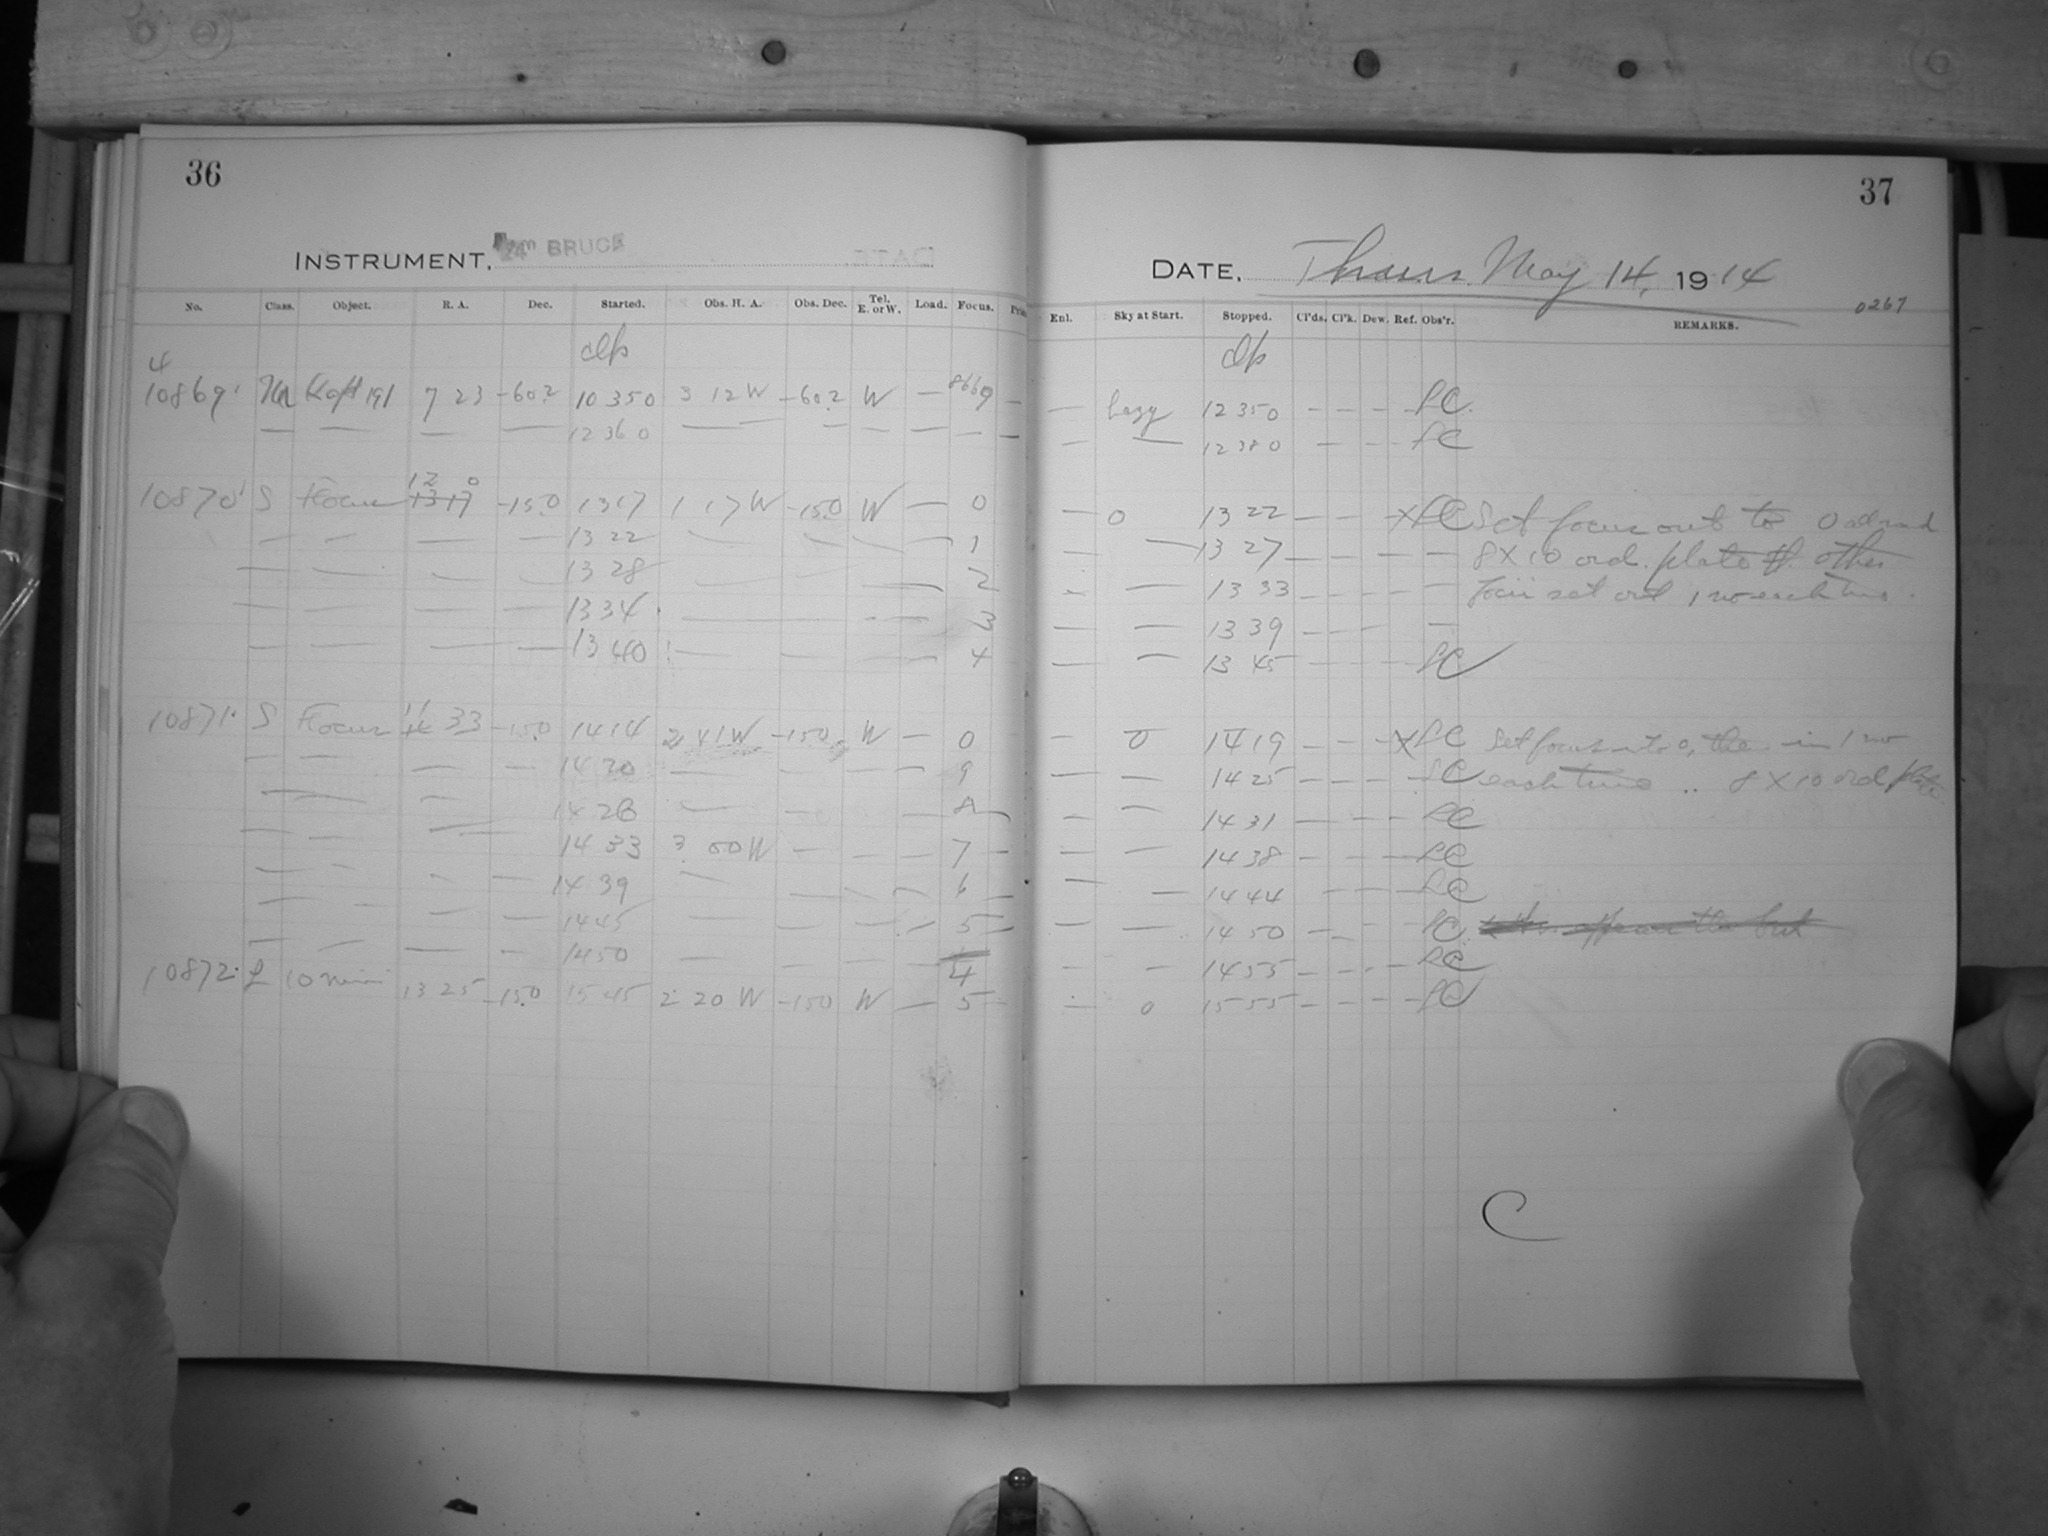 36
INSTRUMENT, 24 in BRUCE
No. Class. Object. R. A. Dec. Started. Obs. H. A. Obs. Dec. Tel. E. or W. Load. Focus.
4
10869 7 23 -60.2 10 35 0 3 12 W -60.2 W —
— — — — 12 36 0 — — — — —
12 0
10870 S Focus 13 17 -15.0 13 17 1 17 W -15.0 W — 0
— — — — 13 22 — — — — 1
— — — — 13 28 — — — — 2
— — — — 13 34 — — — — 3
— — — — 13 40 — — — — 4
10871 S Focus 11 33 -15.0 14 14 2 41 W -15.0 W — 0
— — — — 14 20 — — — — 9
— — — 14 28 — — — 8
— — — 14 33 3 00 W — — — 7
— — — — 14 39 — — — — 6
— — — — 14 45 — — — — 5
— — — — 14 50 — — — 4
10872 L 10 min 13 25 -15.0 15 45 2 20 W -15.0 W — 5
37
DATE, Thurs. May 14, 1914
0267
Enl. Sky at Start. Stopped. Cl'ds. Cl'k. Dew. Ref. Obs'r. REMARKS.
— hazy 12 35 0 — — — LC
— — 12 38 0 — — — LC
— 0 13 22 — — — X LC Set focus out to 0 and
— — 13 27 — — — — — 8 X 10 ord. plate other
— — 13 33 — — — — foci set out 1 no each time.
— — 13 39 — — — —
— — 13 45 — — — LC
— 0 14 19 — — — X LC Set focus in to 0, then in 1 no
— — 14 25 — — — LC each time 8 X 10 ord plate
— — 14 31 — — — LC
— — 14 38 — — — LC
— — 14 44 — — — LC
— — 14 50 — — — LC
— — 14 55 — — — LC
— 0 15 55 — — — LC
C